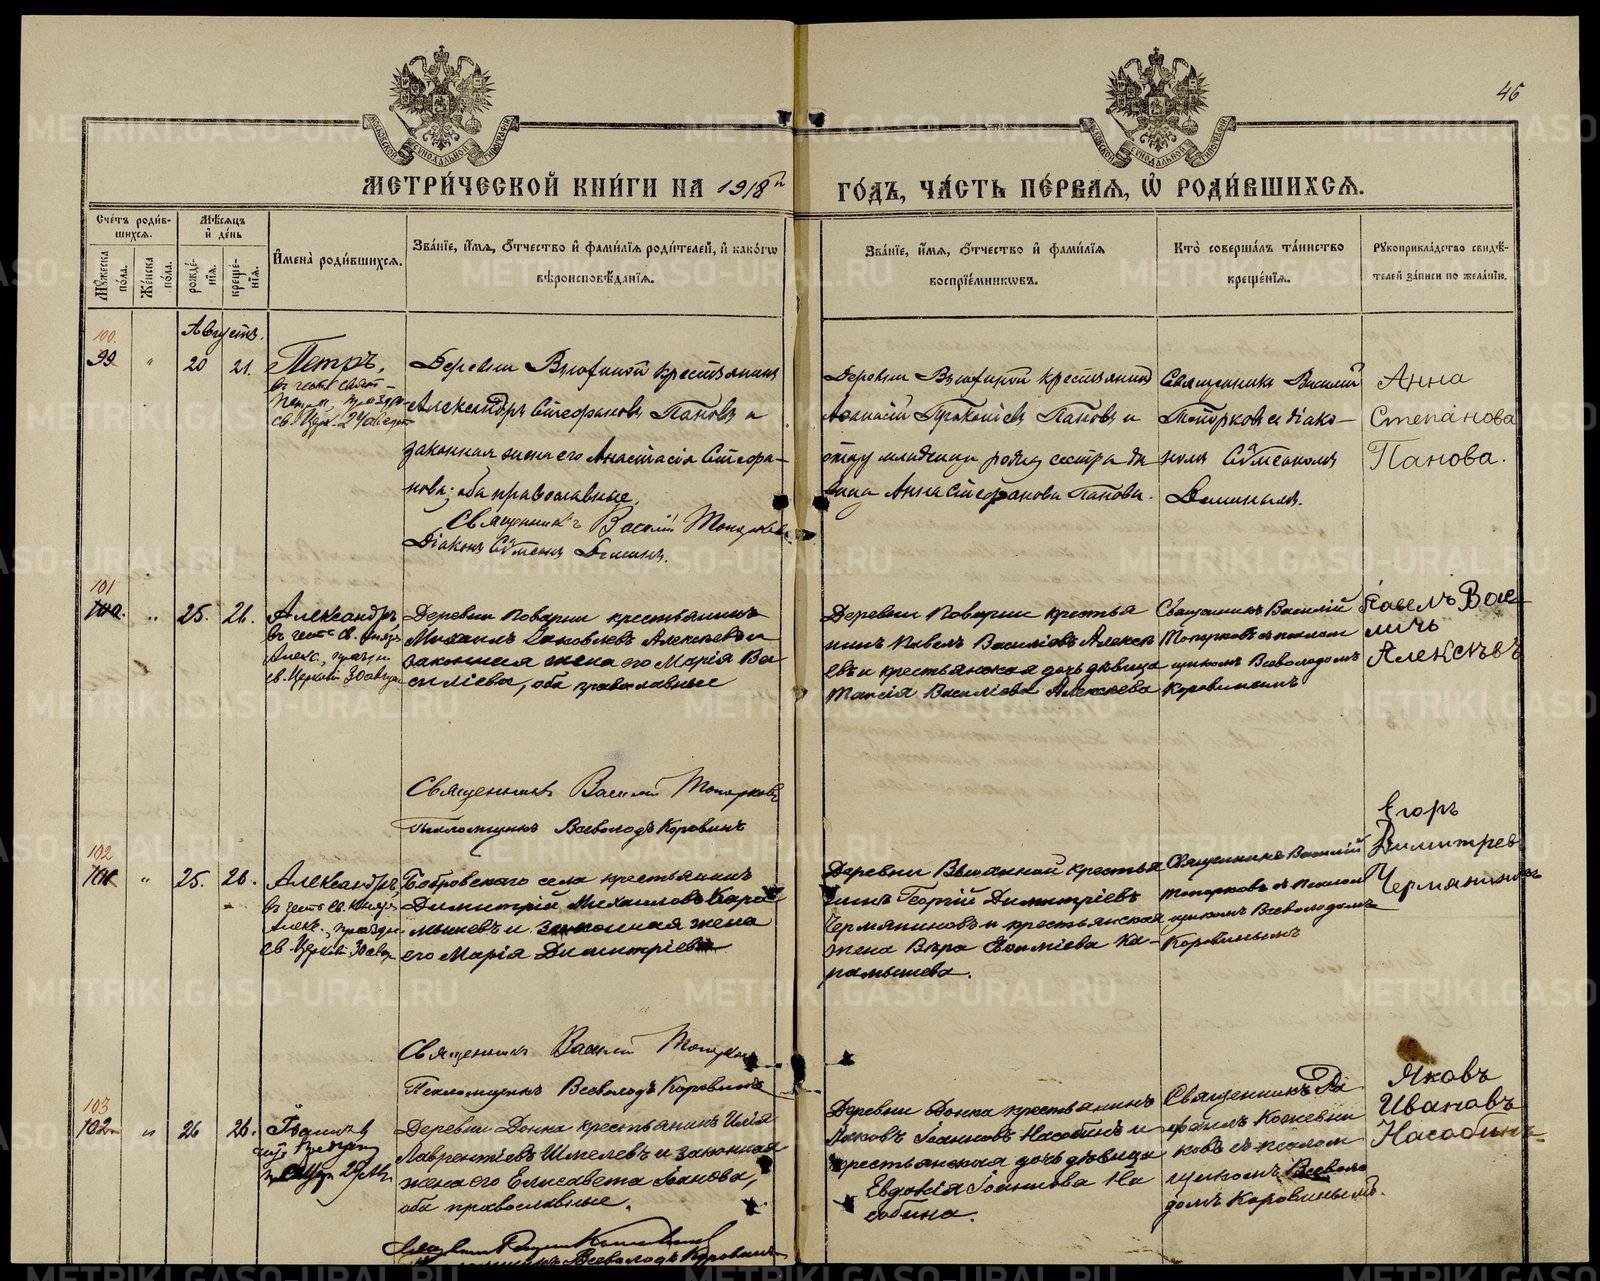 46
МЕТРИЧЕСКОЙ КНИГИ НА 1918й
ГОДЪ, ЧАСТЬ ПЕРВАЯ, Ѡ РОДИВШИХСЯ.
Счетъ родившихся.
Мужеска пола.
Женска пола.
Мѣсяцъ и день
рожденія.
крещенія.
Имена родившихся.
Званіе, имя, отчество и фамилія родителей, и какогѡ
вѣроисповѣданія.
Званіе, имя, отчество и фамилія
воспріемниковъ.
Кто совершалъ таинство
крещенія.
Рукоприкладство свидѣ-
телей записи по желанію.
Августъ.
100.
99
"
20
21.
Петръ,
въ честь
св. Церк. 24 авг.
Деревни крестьянинъ
Александръ Стефановъ Пановъ и
законная жена его Анастасія Стефа-
нова; оба православные.
Священникъ Василій Топорковъ
Діаконъ Симеонъ
Деревни крестьянинъ
Пановъ и
сестра дѣ-
вица Анна Стефанова Панова.
Священникъ Василій
Топорковъ съ діако-
номъ Симеономъ
Анна
Степанова
Панова.
101
100.
"
25.
26.
Александръ,
въ честь св. Князя
Алекс., празд.
св. Церковію 30 августа
Деревни Поварни крестьянинъ
Михаилъ Іаковлевъ Алексѣевъ и
законная жена его Марія Ва-
силіева, оба православные
Священникъ Василій Топорковъ
Псаломщикъ Всеволодъ Коровинъ
Деревни Поварни крестья
нинъ Павелъ Василіевъ Алексѣ
евъ и крестьянская дочь дѣвица
Таисія Василіева Алексѣева
Священникъ Василій
Топорковъ съ псалом
щикомъ Всеволодомъ
Коровинымъ
Павелъ Васи
личь
Алексѣевъ
102
101
"
25.
26.
Александръ,
въ честь св. Князя
Алекс., праздн.
св. Церков. 30 авг.
Бобровскаго села крестьянинъ
Димитрій Михаиловъ Кара
мышевъ и законная жена
его Марія Димитріева
Священникъ Василій Топорковъ
Псаломщикъ Всеволодъ Коровинъ
Деревни крестья
нинъ Георгій Димитріевъ
Чермяниновъ и крестьянская
жена Вѣра Ка-
рамышева.
Священникъ Василій
Топорковъ съ псалом
щикомъ Всеволодомъ
Коровинымъ
Егоръ
Димитрев
Чермяниновъ
103
102
"
26
26.
Деревни Донка крестьянинъ Илія
Лаврентіевъ Шмелевъ и законная
жена его Елисавета Іоанова,
оба православные.
Всеволодъ Коровинъ
Деревни Донка крестьянинъ
Іаковъ Іоанновъ Насобинъ и
крестьянская дочь дѣвица
Евдокія Іоаннова На
собина.
Священникъ Ра
фаилъ Кожевни
ковъ съ псалом
щикомъ Всеволо
домъ Коровинымъ.
Яковъ
Ивановъ
Насобинъ
METRIKI.GASO-URAL.RU